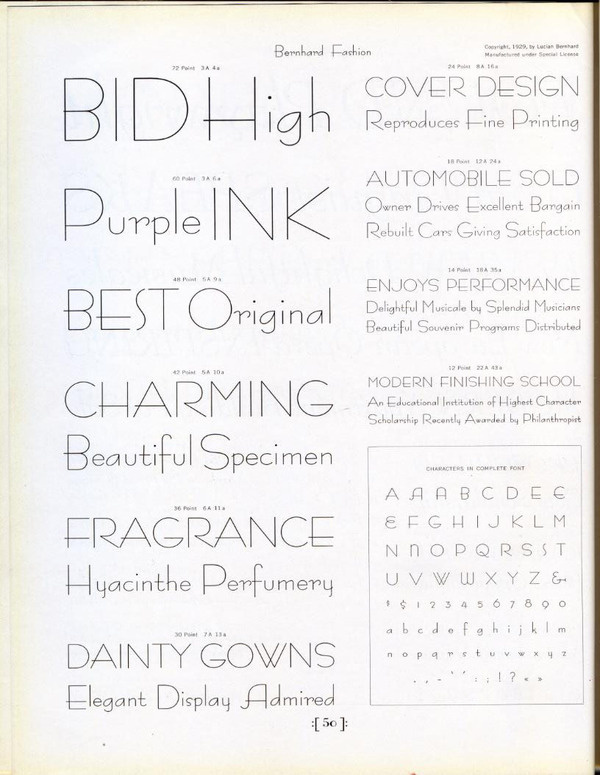 Bernhard Fashion
Copyright, 1929, by Lucian Bernhard
Manufactured under Special License
72 Point 3A 4a
BID High
60 Point 3A 6a
Purple INK
48 Point 5A 9a
BEST Original
42 Point 5A 10a
CHARMING
Beautiful Specimen
36 Point 6A 11a
FRAGRANCE
Hyacinthe Perfumery
30 Point 7A 13a
DAINTY GOWNS
Elegant Display Admired
24 Point 8A 16a
COVER DESIGN
Reproduces Fine Printing
18 Point 12A 24a
AUTOMOBILE SOLD
Owner Drives Excellent Bargain
Rebuilt Cars Giving Satisfaction
14 Point 18A 35a
ENJOYS PERFORMANCE
Delightful Musicale by Splendid Musicians
Beautiful Souvenir Programs Distributed
12 Point 22A 43a
MODERN FINISHING SCHOOL
An Educational Institution of Highest Character
Scholarship Recently Awarded by Philanthropist
CHARACTERS IN COMPLETE FONT
A A A B C D E E
E F G H I J K L M
N N O P Q R S S T
U V W W X Y Z &
$ $ 1 2 3 4 5 6 7 8 9 0
a b c d e f g h i j k l m
n o p q r s t u v w x y z
. , - ' ' : ; ! ? « »
:[ 50 ]: